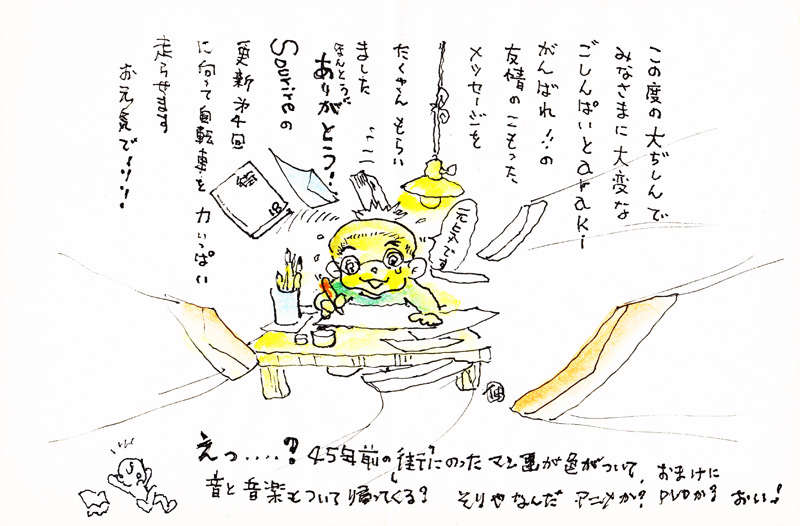 この度の大ぢしんで
みなさまに大変な
ごしんぱいとaraki
がんばれ!!の
友情のこもった
メッセージを
たくさんもらい
ました
ほんとうに
ありがとう!
Sourireの
更新 第4回
に向って自転車を 力いっぱい
走らせます
お元気で!!!
えっ‥‥? 45年前の「街」にのったマンガが色がついて、おまけに
音と音楽もついて帰ってくる? そりゃなんだ アニメか? DVDか? おい!